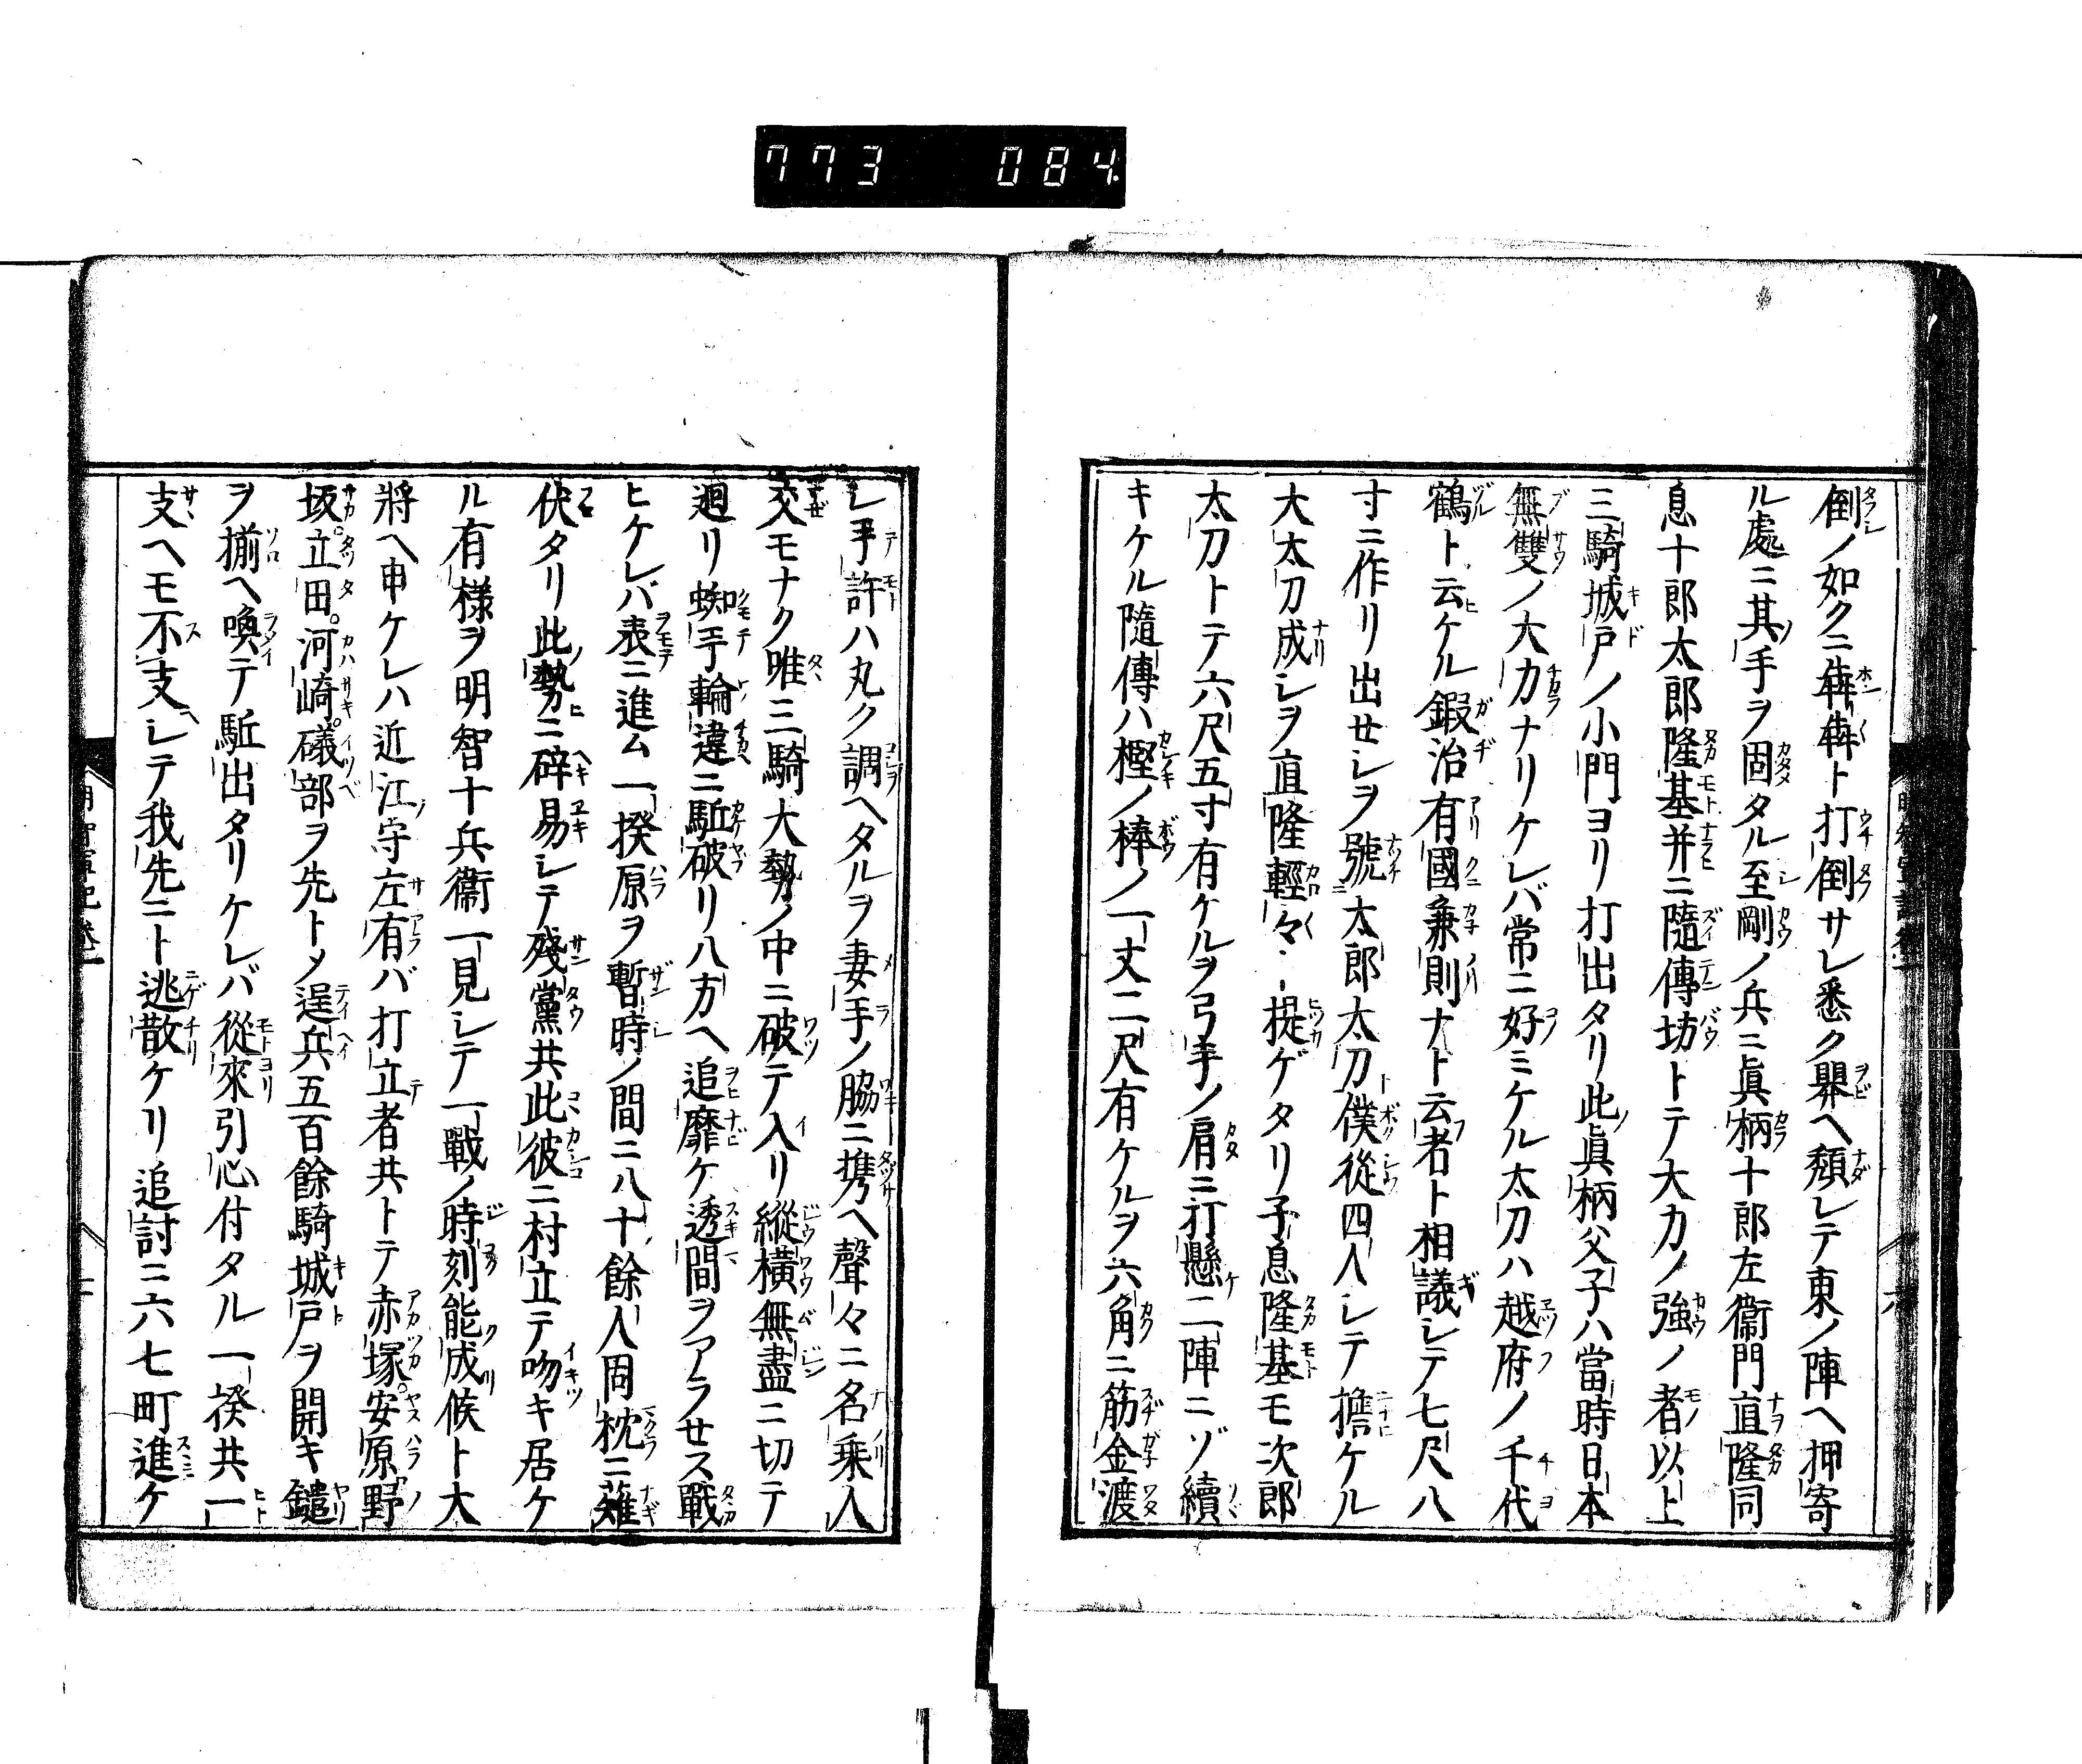 773 084
倒ノ如クニ犇犇ト打倒サレ悉ク騨ヘ頽レテ東ノ陣ヘ押寄
ル處ニ其手ヲ固タル至剛ノ兵ニ眞柄十郎左衞門直隆同
息十郎太郎隆基并ニ隨傳坊トテ大力ノ強ノ者以上
三騎城戸ノ小門ヨリ打出タリ此眞柄父子ハ當時日本
無雙ノ大力ナリケレバ常ニ好ミケル太刀ハ越府ノ千代
鶴ト云ケル鍜冶有國兼則ナト云者ト相議レテ七尺八
寸ニ作リ出せシヲ號太郎太刀ト僕從四人シテ擔ケル
大太刀成シヲ直隆輕々ト提ゲタリ子息隆基モ次郎
太刀トテ六尺五寸有ケルヲ弓手ノ肩ニ打懸二陣ニゾ續
キケル隨傳ハ樫ノ棒ノ一丈二尺有ケルヲ六角ニ筋金渡
シ手許ハ丸ク調ヘタルヲ妻手ノ脇ニ携ヘ聲々ニ名乗入
交モナク唯三騎大勢ノ中ニ破テ入リ縱横無盡ニ切テ
廻リ蜘手輪違ニ駈破リ八方ヘ追靡ケ透間ヲアラせス戰
ヒケレバ表ニ進ム一揆原ヲ暫時ノ間ニ八十餘人同枕ニ薙
伏タリ此勢ニ辟易シテ殘黨共此彼ニ村立テ吻キ居ケ
ル有樣ヲ明智十兵衞一見シテ一戰ノ時刻能成候ト大
將ヘ申ケレハ近江守左有バ打立者共トテ赤塚。安原野
坂。立田。河崎。礒部ヲ先トメ逞兵五百餘騎城戸ヲ開キ鑓
ヲ揃ヘ喚テ駈出タリケレバ從來引心付タル一揆共一
支ヘモ不支シテ我先ニト逃散ケリ追討ニ六七町進ケ